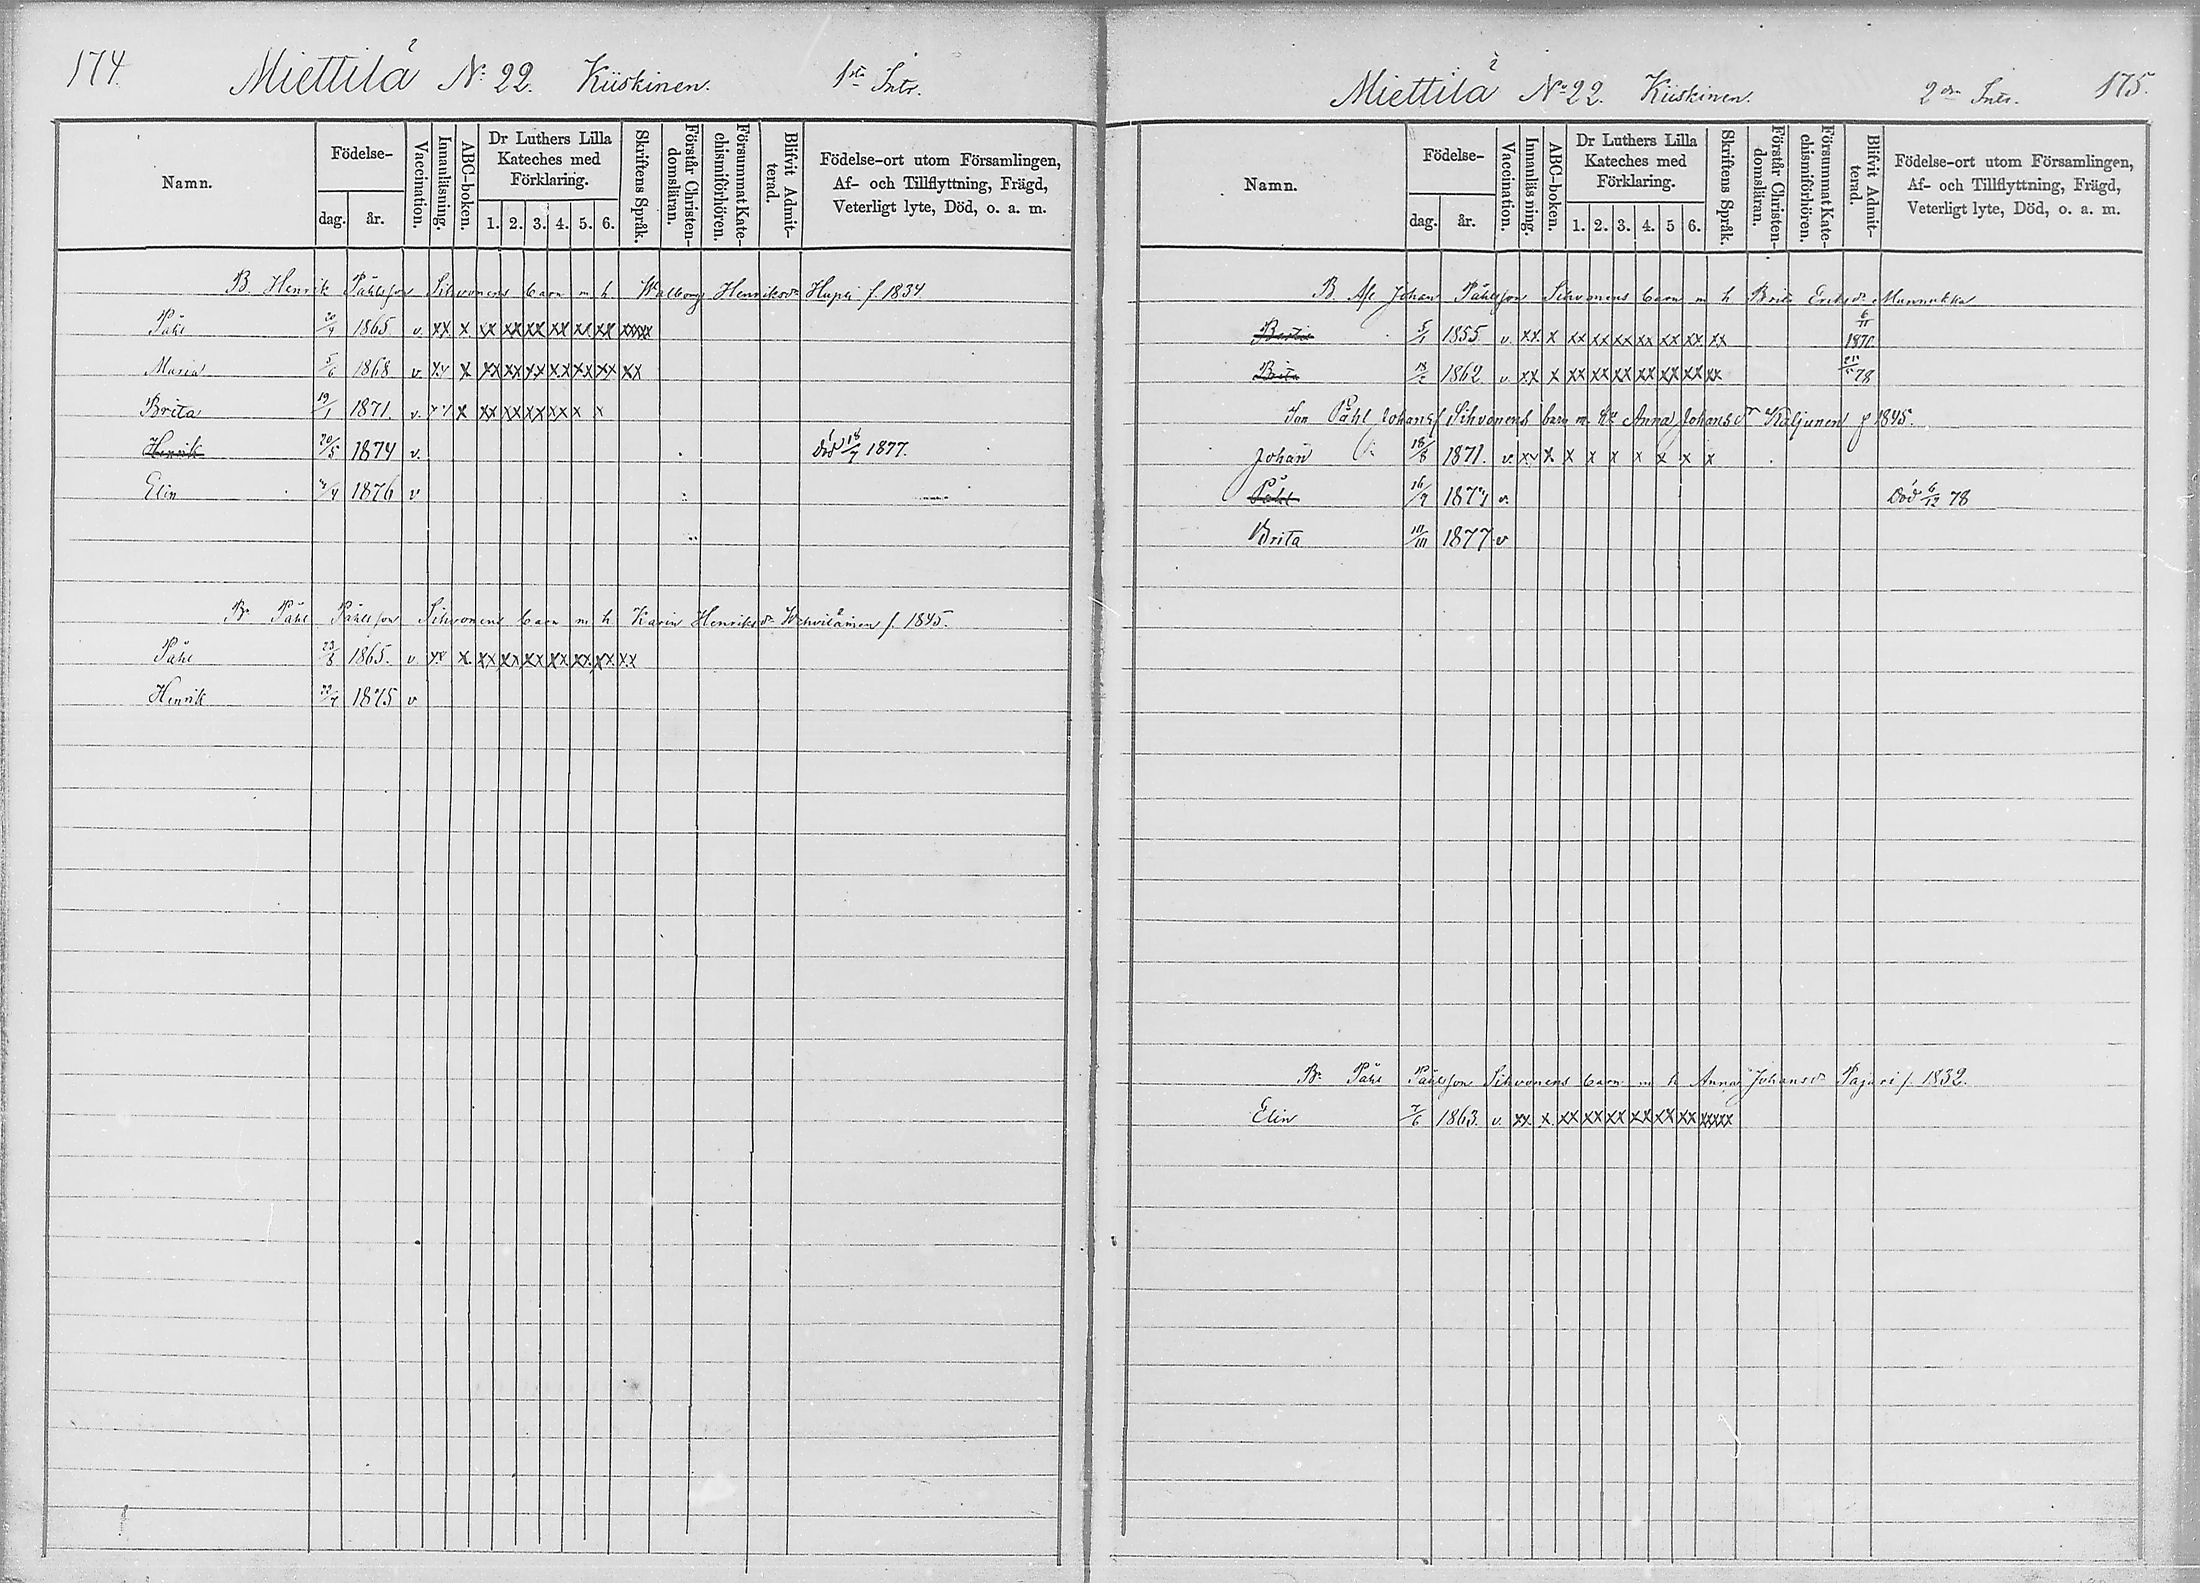 174.
Miettilä № 22. Kiiskinen. 1sta Intr.
Namn.
Födelse-
dag. år.
Vaccination.
Innanläsning.
ABC-boken.
Dr Luthers Lilla Kateches med Förklaring.
1. 2. 3. 4. 5. 6.
Skriftens Språk.
Förstår Christen-domsläran.
Försummat Kate-chismiförhören.
Blifvit Admit-terad.
Födelse-ort utom Församlingen,
Af- och Tillflyttning, Frägd,
Veterligt lyte, Död, o. a. m.
B. Henrik Påhlsson Sihvonens barn m h Walborg Henriksdr Hupli f. 1834
Påhl 20/4 1865 v. xx x. xx xx xx xx xx xx xxxxx
Maria 5/6 1868 v. xx x xx xx xx xx xx xx xx
Brita 19/1 1871. v. x xx xx xx xx x x
Henrik 20/5 1874 v. Död 18/7 1877.
Elin 1876 v
Br Påhl Påhlsson Sihvonens barn m h Karin Henriksdr f. 1845.
Påhl 23/8 1865. v. xx x. xx xx xx xx xx. xx xx
Henrik 1875 v
175.
Miettilä № 22. Kiiskinen. 2dra Intr.
Namn.
Födelse-
dag. år.
Vaccination.
Innanläsning.
ABC-boken.
Dr Luthers Lilla Kateches med Förklaring.
1. 2. 3. 4. 5 6.
Skriftens Språk.
Förstår Christen-domsläran.
Försummat Kate-chismiförhören.
Blifvit Admit-terad.
Födelse-ort utom Församlingen,
Af- och Tillflyttning, Frägd,
Veterligt lyte, Död, o. a. m.
B. Afl Johan Påhlsson Sihvonens barn m h Brita Eriksdr Munnukka
5/1 1855 v. xx. x xx xx xx xx xx xx. xx 6/11
Brita 1862 v. xx x xx xx xx xx xx xx xx 78
Son Påhl Johanss Sihvonens barn m. hu Anna Johansdr Kaljunen f 1845.
Johan 18/8 1871. v. xx x. x x x x x x x
Påhl 16/9 1874 v. Död 6/12 78
Brita 1877 v
Br Påhl Påhlsson Sihvonens barn m h Anna Johansdr Pajari f. 1832.
Elin 7/6 1863. v. xx. x. xx xx xx xx xx xx xxxxx